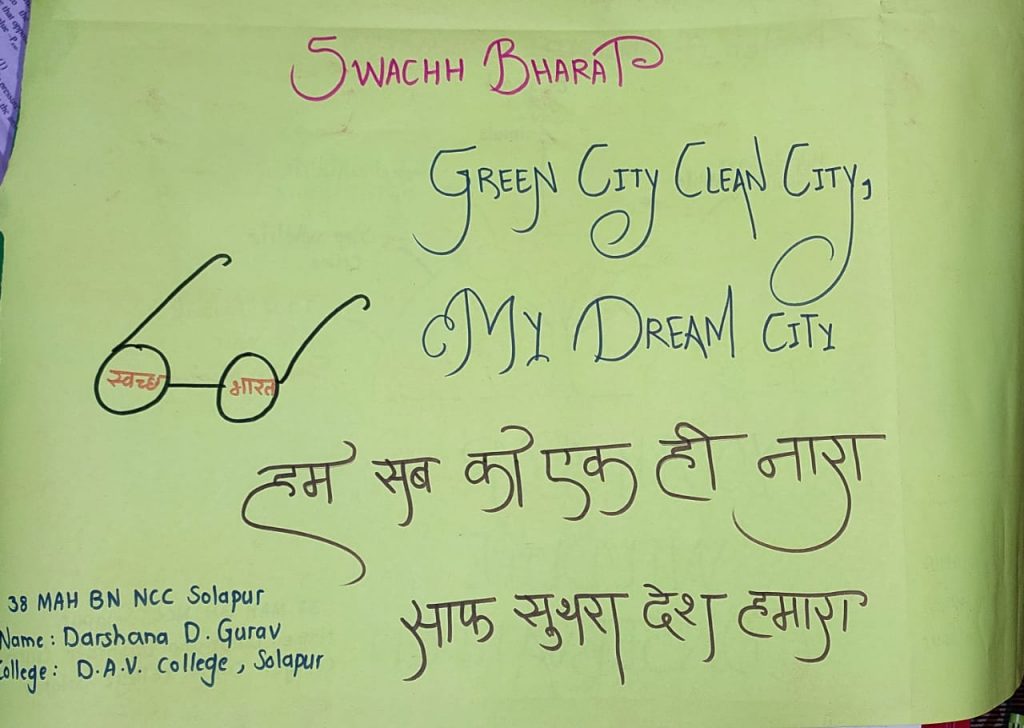 SWACHH BHARAT
GREEN CITY CLEAN CITY,
MY DREAM CITY
स्वच्छ भारत
हम सब को एक ही नारा
साफ सुथरा देश हमारा
38 MAH BN NCC Solapur
Name: Darshana D. Gurav
College: D.A.V. College, Solapur